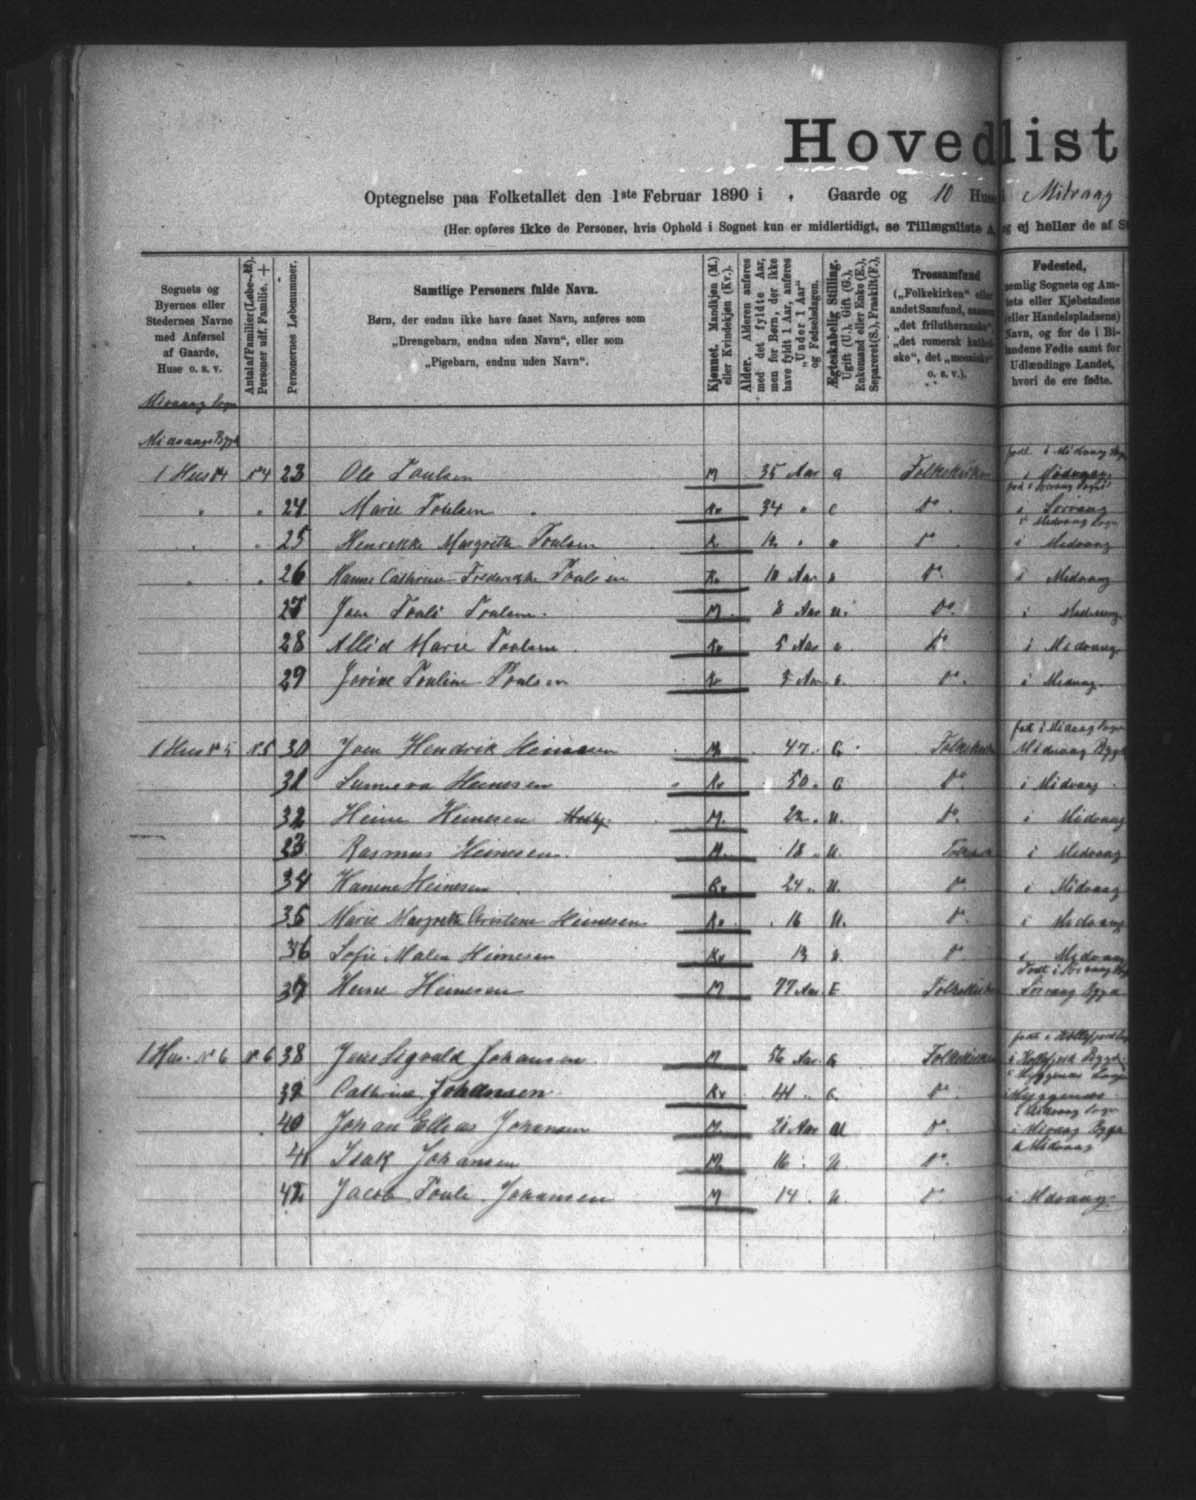 Hovedlist
Optegnelse paa Folketallet den 1ste Februar 1890 i , Gaarde og 10 Huse i Midvaag
(Her opføres ikke de Personer, hvis Ophold i Sognet kun er midlertidigt, se Tillægsliste A, og ej heller de af St
Sognets og Byernes eller Stedernes Navne med Anførsel af Gaarde, Huse o. s. v.
Antal af Familier (Løbe-N.) Personer udf. Familie. +
Personernes Løbenummer.
Samtlige Personers fulde Navn.
Børn, der endnu ikke have faaet Navn, anføres som „Drengebarn, endnu uden Navn“, eller som „Pigebarn, endnu uden Navn“.
Kjønnet. Mandkjøn (M.) eller Kvindekjøn (Kv.).
Alder. Alderen anføres med det fyldte Aar, men for Børn, der ikke have fyldt 1 Aar, anføres „Under 1 Aar“ og Fødselsdagen.
Ægteskabelig Stilling. Ugift (U.), Gift (G.), Enkemand eller Enke (E.), Separeret (S.), Fraskilt (F.),
Trossamfund („Folkekirken“ eller andet Samfund, saasom „det frilutheranske“, „det romersk katholske“, det „mosaiske“ o. s. v.).
Fødested, nemlig Sognets og Amtets eller Kjøbstadens (eller Handelspladsens) Navn, og for de i Bilandene Fødte samt for Udlændinge Landet, hvori de ere fødte.
Midvaag Sogn
Midvaags Bygd
1 Hus N4 N4 23 Ole Poulsen M 35 Aar G Folkekirken født i Midvaag Sogn i Midvaag
24 Marie Poulsen Kv 34 " G Do i Sørvaag
25 Henrikke Margrethe Poulsen K 12 " u Do i Midvaag
26 Hanne Cathrine Frederikke Poulsen Kv 10 Aar u Do i Midvaag
27 Joen Poul Poulsen M 8 Aar u Do i Midvaag
28 Marie Poulsen Kv 5 Aar u Do i Midvaag
29 Pouline Poulsen Kv Aar u. Do i Midvaag
1 Hus N5 N5 30 Joen Hendrik Heinesen M 47 G Folkekirken født i Midvaag Sogn Midvaag Bygd
31 Sunneva Heinesen Kv 50 G Do i Midvaag
32 Heine Heinesen M. 22 U. Do i Midvaag
33 Rasmus Heinesen M. 18 U. i Midvaag
34 Hanne Heinesen Kv 24 U. Do i Midvaag
35 Marie Margrethe Heinesen Kv 16 U. Do i Midvaag
36 Sofie Malen Heinesen Kv 13 U. Do i Midvaag
37 Heine Heinesen M 77 Aar E Folkekirken Født i Sørvaag Sørvaag Bygd
1 Hus. N6 N6 38 Jens Sigvald Johansen M 56 Aar G Folkekirken født i Kollefjord i Kollefjord Bygd
39 Cathrine Johansen Kv 41 " G Do
40 Johan Ellias Johansen M. 21 Aar U Do i Midvaag Bygd
41 Isak Johansen M 16 U Do i Midvaag
42 Jacob Poule Johansen M 14 U. Do i Midvaag